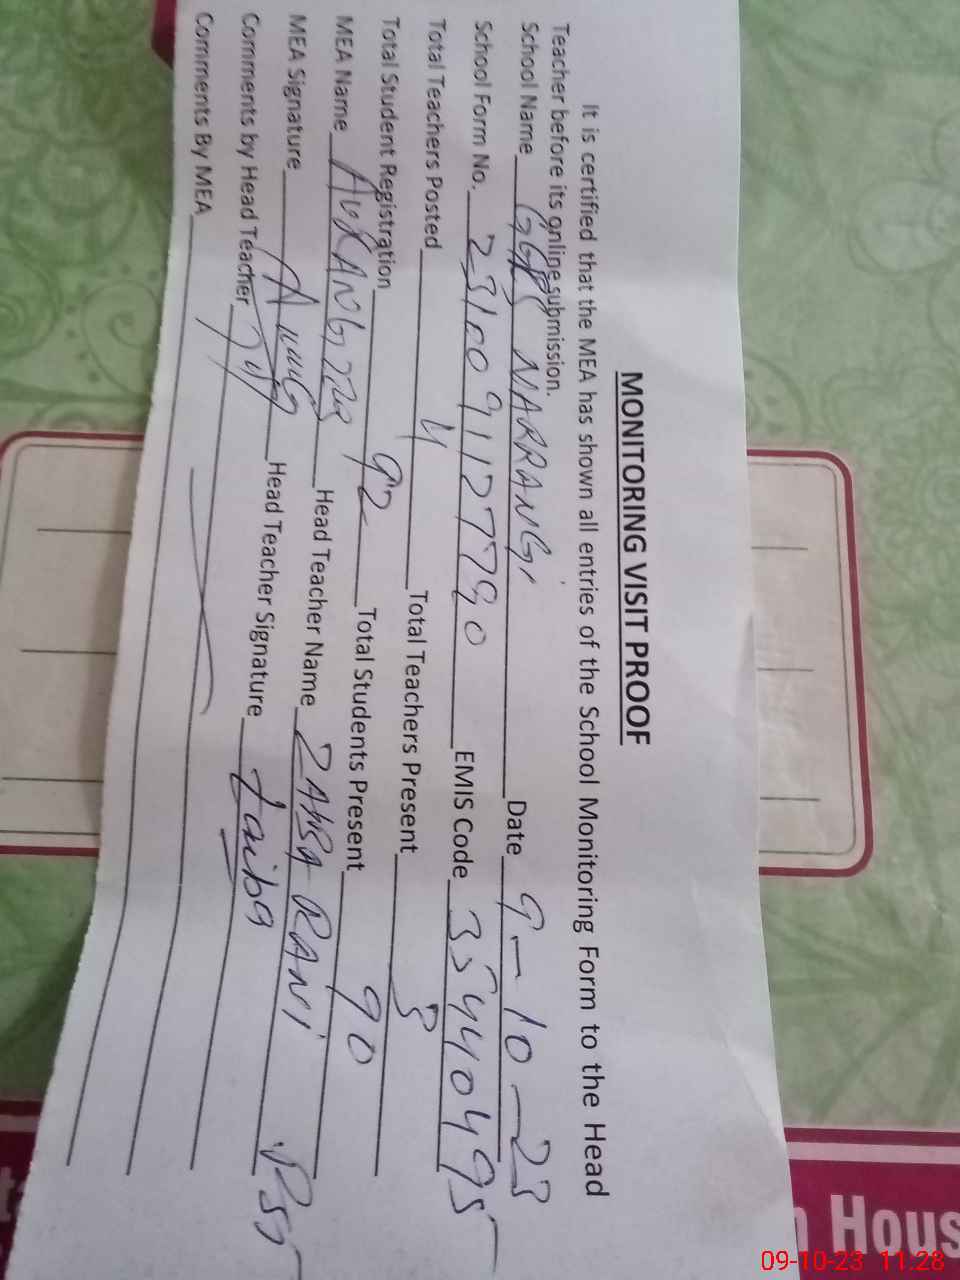 MONITORING VISIT PROOF
It is certified that the MEA has shown all entries of the School Monitoring Form to the Head
Teacher before its online submission.
School Name GGPS NARRANG Date 9-10-23
School Form No. 2310091127790 EMIS Code 35440495
Total Teachers Posted 4 Total Teachers Present 3
Total Student Registration 92 Total Students Present 90
MEA Name Head Teacher Name RANI
MEA Signature Head Teacher Signature Taiba PST
Comments by Head Teacher
Comments By MEA
Hous
09-10-23 11:28